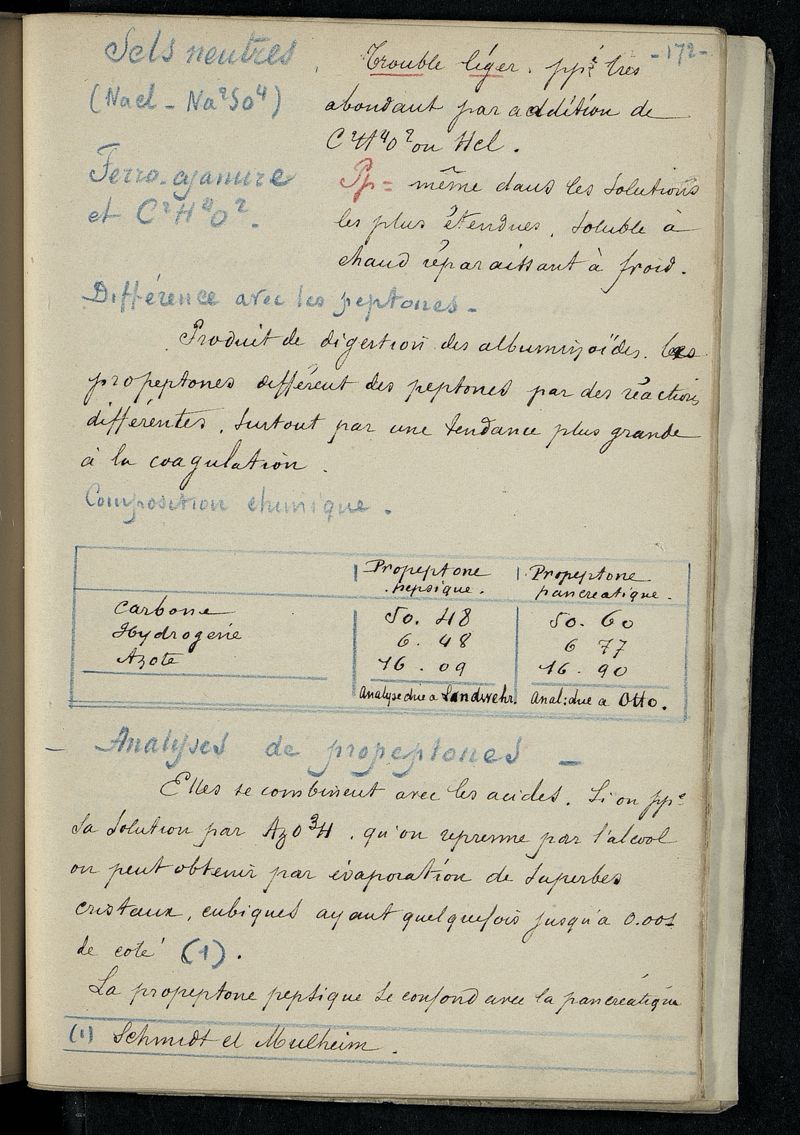 -172-
Sels neutres
(Nacl - Na²So⁴)
Trouble léger. ppé très
abondant par addition de
C²H⁴O² ou Hcl.
Ferro-cyanure
et C²H⁴O².
Pp= même dans les solutions
les plus étendues, soluble à
chaud réparaissant à froid.
Différence avec les peptones -
Produit de digestion des albuminoïdes. les
propeptones diffèrent des peptones par des réactions
différentes, surtout par une tendance plus grande
à la coagulation.
Composition chimique.
Propeptone pepsique. Propeptone pancreatique.
Carbone 50.48 50.60
Hydrogène 6.48 6 77
Azote 16.09 16.90
Analyse due a Landwehr. Anal: due a Otto.
- Analyses de propeptones -
Elles se combinent avec les acides. Si on ppe
sa solution par AzO³H. qu'on reprenne par l'alcool
on peut obtenir par évaporation de superbes
cristaux, cubiques ayant quelquefois jusqu'a 0.001
de coté (1).
La propeptone pepsique se confond avec la pancréatique
(1) Schmidt et Mulheim.